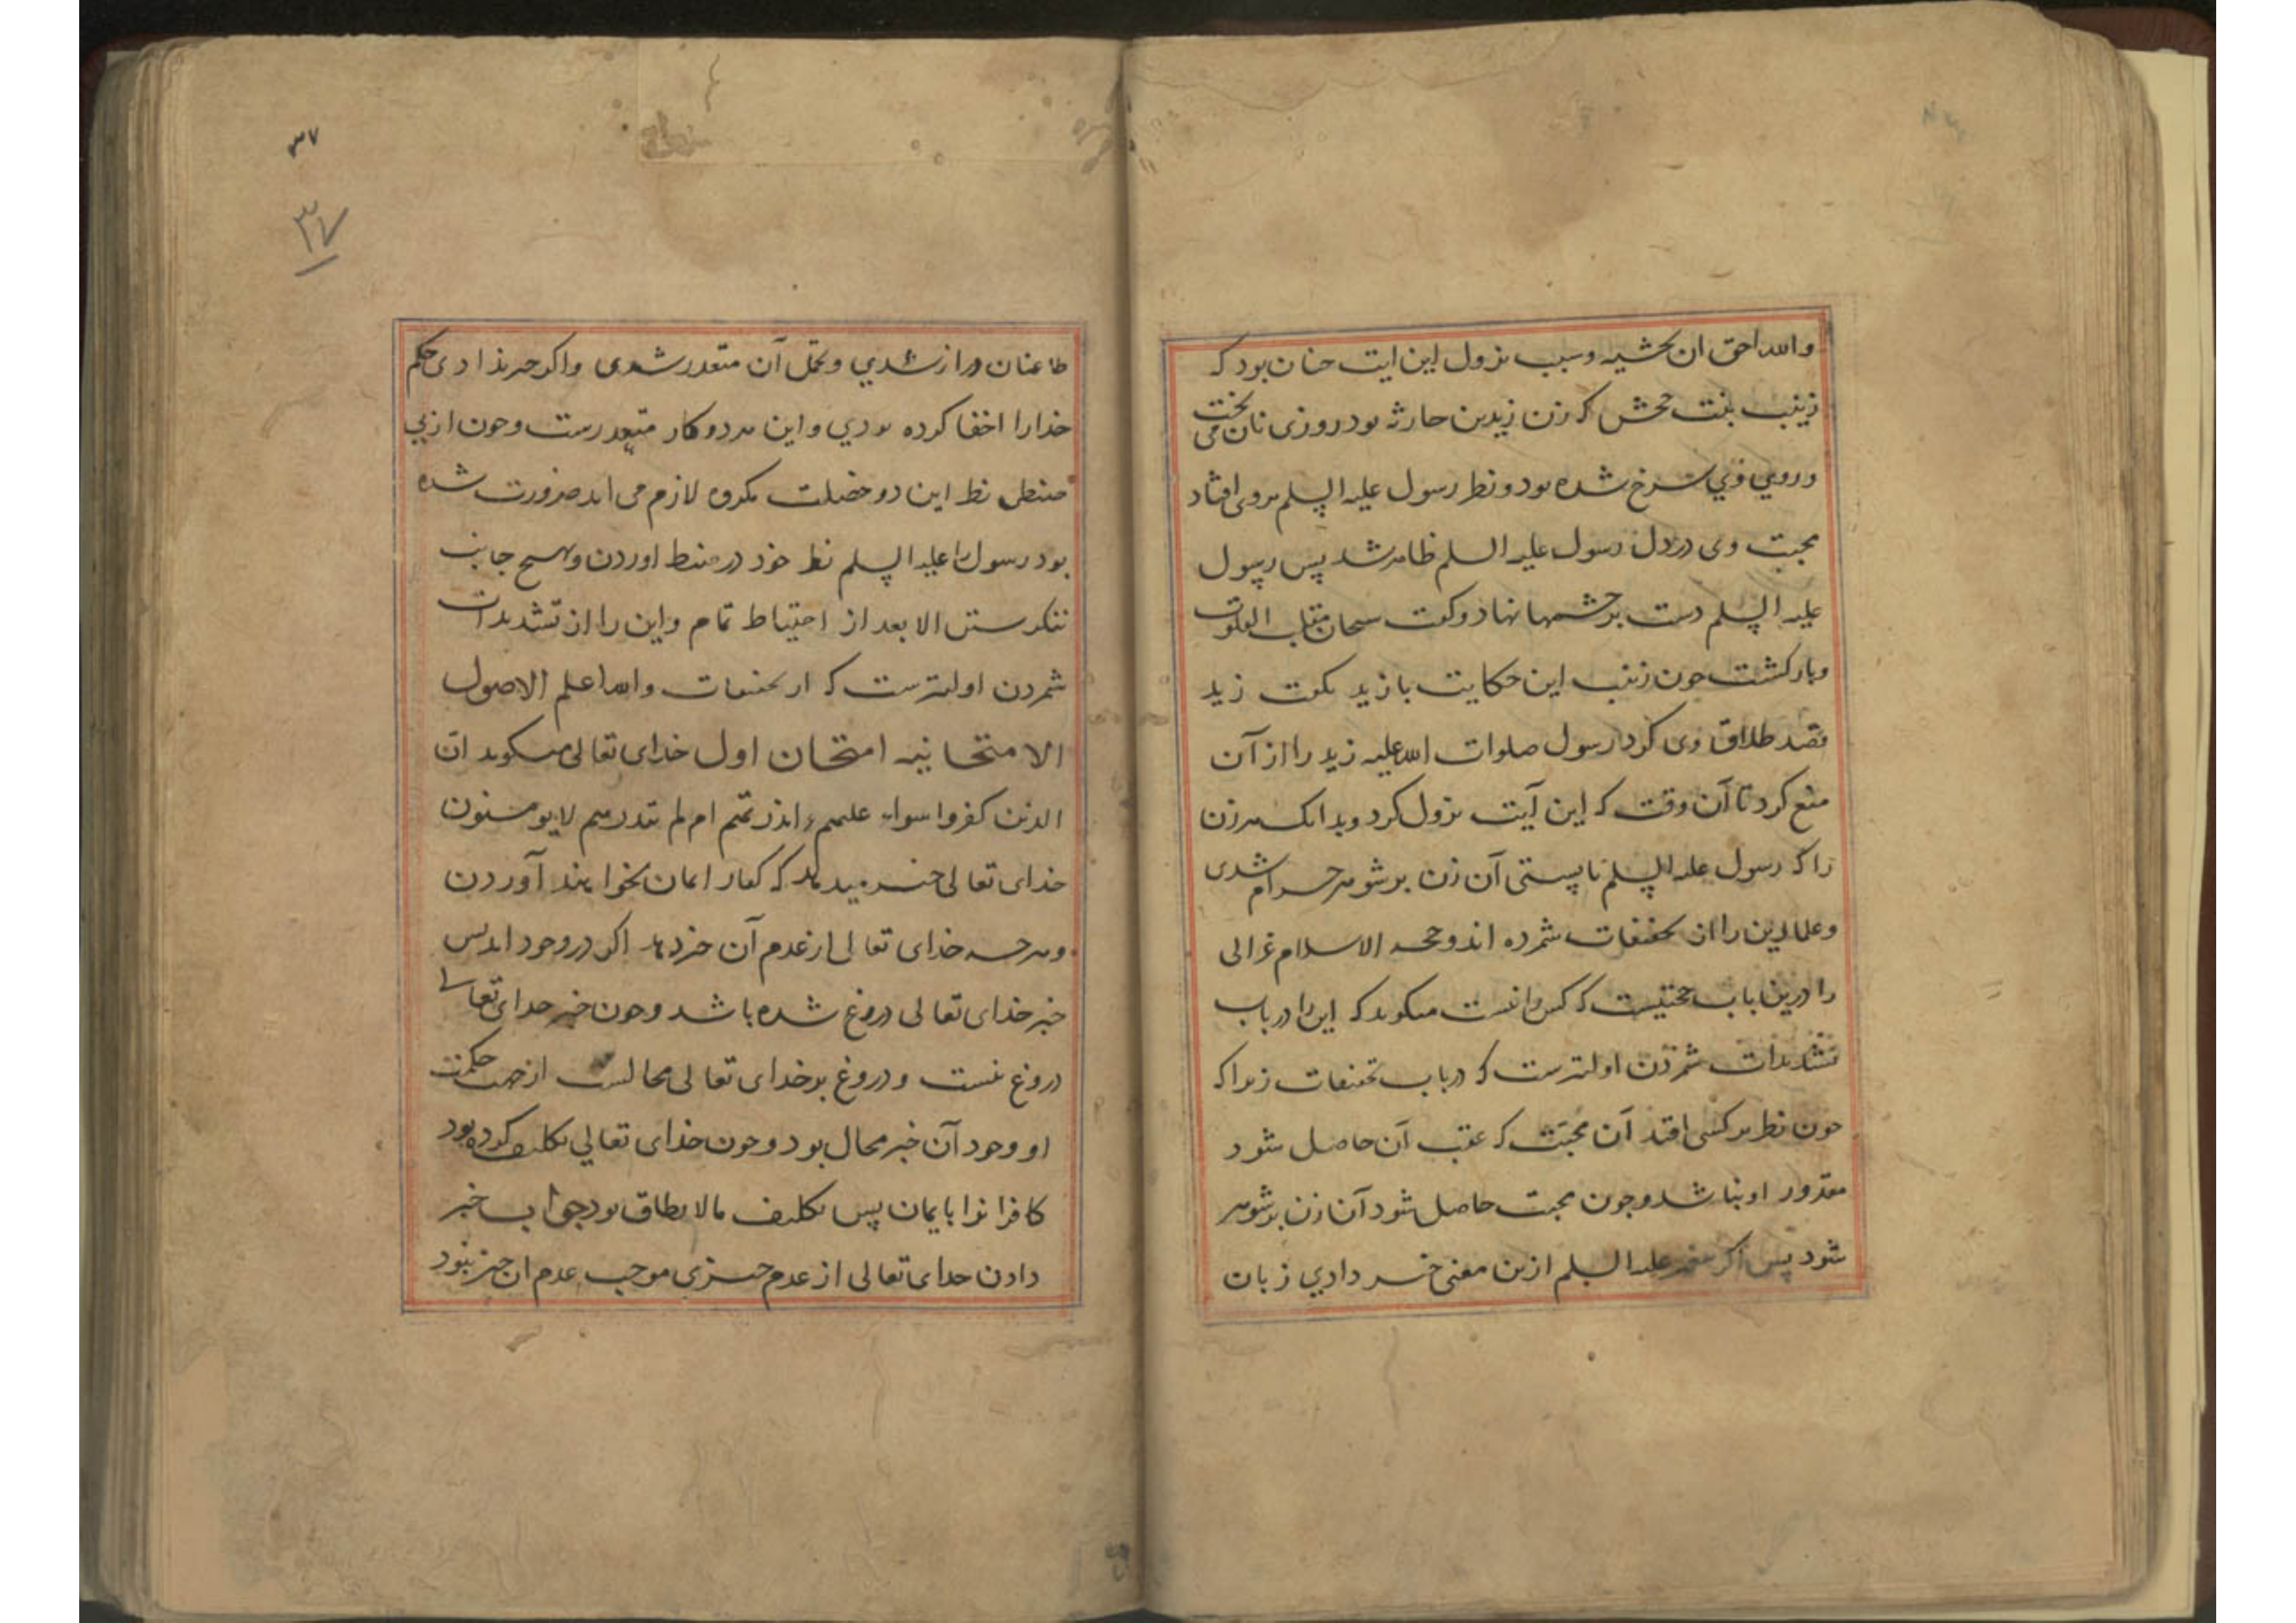 والله احق ان تخشیه و سبب نزول این ایت جنان بود که
زینب بنت جحش که زن زیدبن حارثه بود روزی نان می بخت
و روی وی سرخ شده بود و نظر رسول علیه السلم بروی افتاد
محبت وی در دل رسول علیه السلم ظاهر شد پس رسول
علیه السلم دست بر جشمها نهاد و کفت سبحان مقلب القلوب
و باز کشت جون زینب این حکایت با زید بکفت زید
قصد طلاق وی کرد رسول صلوات الله علیه زید را از آن
منع کرد تا آن وقت که این آیت نزول کرد و بدانک هر زن
را که رسول علیه السلم بایستی آن زن بر شوهر حرام شدی
و علما این را از تخفیفات شمرده اند و حجه الاسلام غزالی
را درین باب میکوید که این را در باب
تشدیدات شمردن اولیترست که در باب تخفیفات زیراکه
جون نظر بر کسی افتد آن محبت که عقب آن حاصل شود
مقدور او نباشد و جون محبت حاصل شود آن زن بر شوهر
شود پس اکر علیه السلم ازین معنی خبر دادی زبان
۳۷
۳۷
طاعنان دراز شدی و تحمل آن متعذر شدی و اکر خبر ندادی حکم
خدا را اخفا کرده بودی و این هر دو کار متعذرست و جون از بی
نظر این دو خصلت مکروه لازم می اید ضرورت شده
بود رسول را علیه السلم نظر خود در ضبط اوردن و بهیج جانب
ننکرستن الا بعد از احتیاط تمام و این را از تشدیدات
شمردن اولیترست که از تخفیفات والله اعلم الاصول
الامتحانیه امتحان اول خدای تعالی میکوید ان
الذین کفروا سواء علیهم ءانذرتهم ام لم تنذرهم لا یومنون
خدای تعالی خبر میدهد که کفار ایمان نخواهند آوردن
و هرجه خدای تعالی از عدم آن خبر دهد اکر در وجود اید بس
خبر خدای تعالی دروغ شده باشد و جون خبر خدای تعالی
دروغ نیست و دروغ بر خدای تعالی محالست از جهت حکمت
او وجود آن خبر محال بود و جون خدای تعالی تکلیف کرده بود
کافرانرا بایمان پس تکلیف مالا یطاق بود جواب خبر
دادن خدای تعالی از عدم جیزی موجب عدم ان جیز نبود